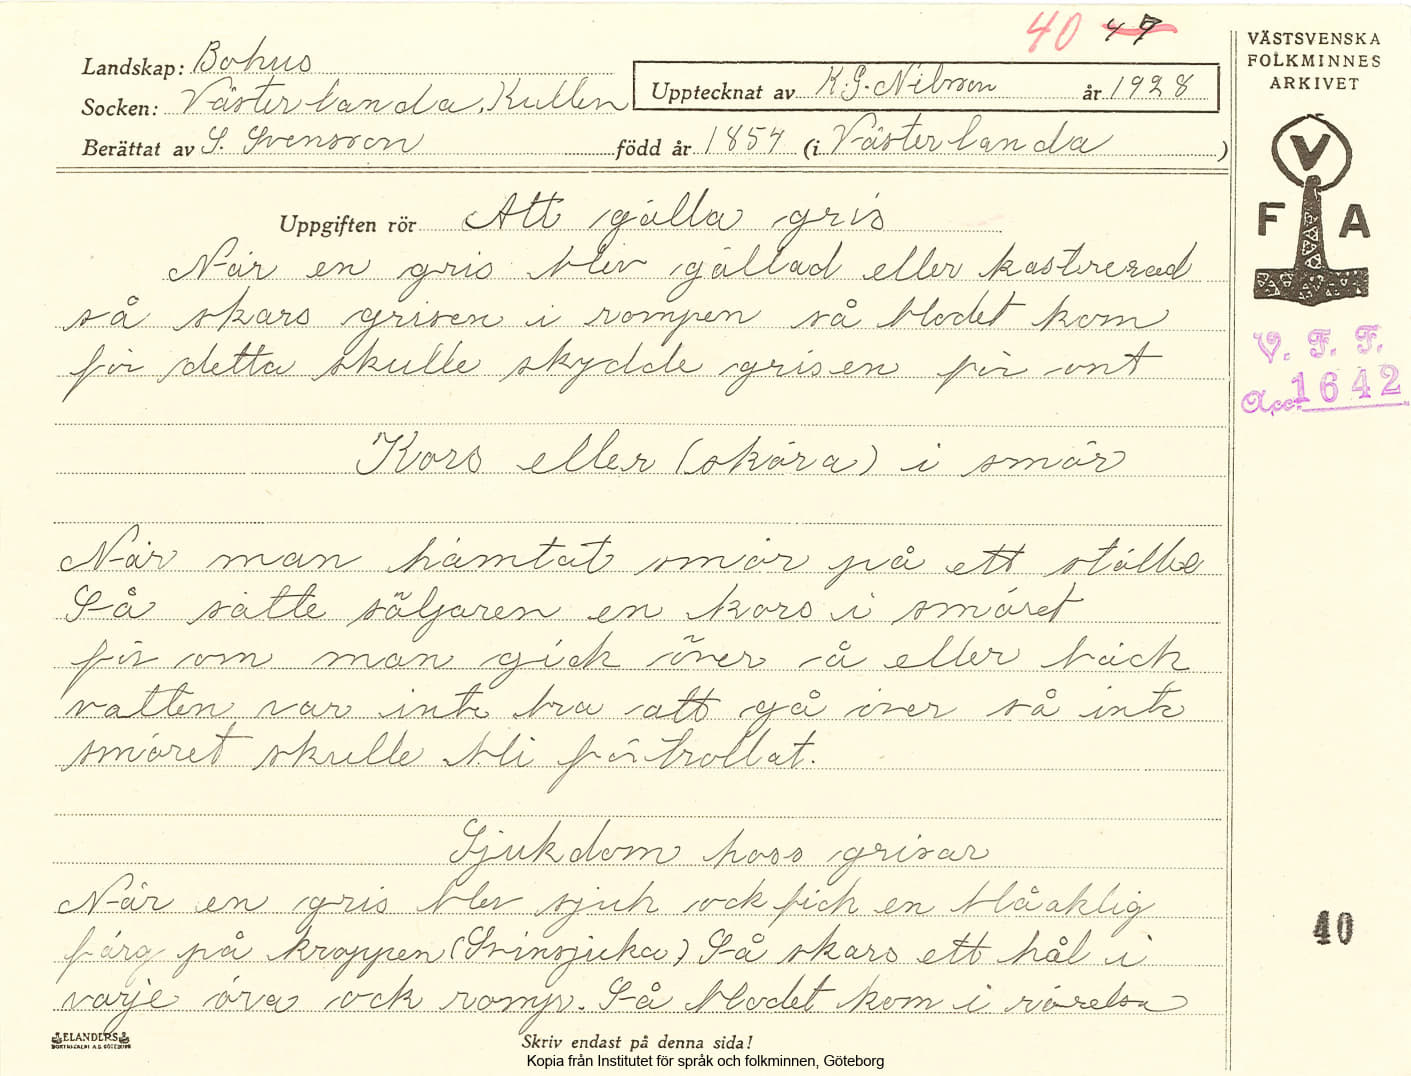 40 47
VÄSTSVENSKA
FOLKMINNES
ARKIVET
Landskap: Bohus
Upptecknat av K.G. Nilsson år 1928
Socken: Västerlanda, Kullen
Berättat av S. Svensson född år 1857 (i Västerlanda)
V
F A
Uppgiften rör Att gälla gris
När en gris blev gällad eller kastrerad
så skars grisen i rompen så blodet kom
för detta skulle skydde grisen för ont
V. F. F.
Acc. 1642
Kors eller (skåra) i smör
När man hämtat smör på ett ställe
Så satte säljaren en kors i smöret
för om man gick över å eller bäck
vatten var inte bra att gå över så inte
smöret skulle bli förtrollat.
Sjukdom hoss grisar
När en gris blev sjuk ock fick en blåaklig
färg på kroppen (Svinsjuka) Så skars ett hål i
varje öra ock romp. Så blodet kom i rörelsa
40
ELANDERS
Skriv endast på denna sida!
Kopia från Institutet för språk och folkminnen, Göteborg